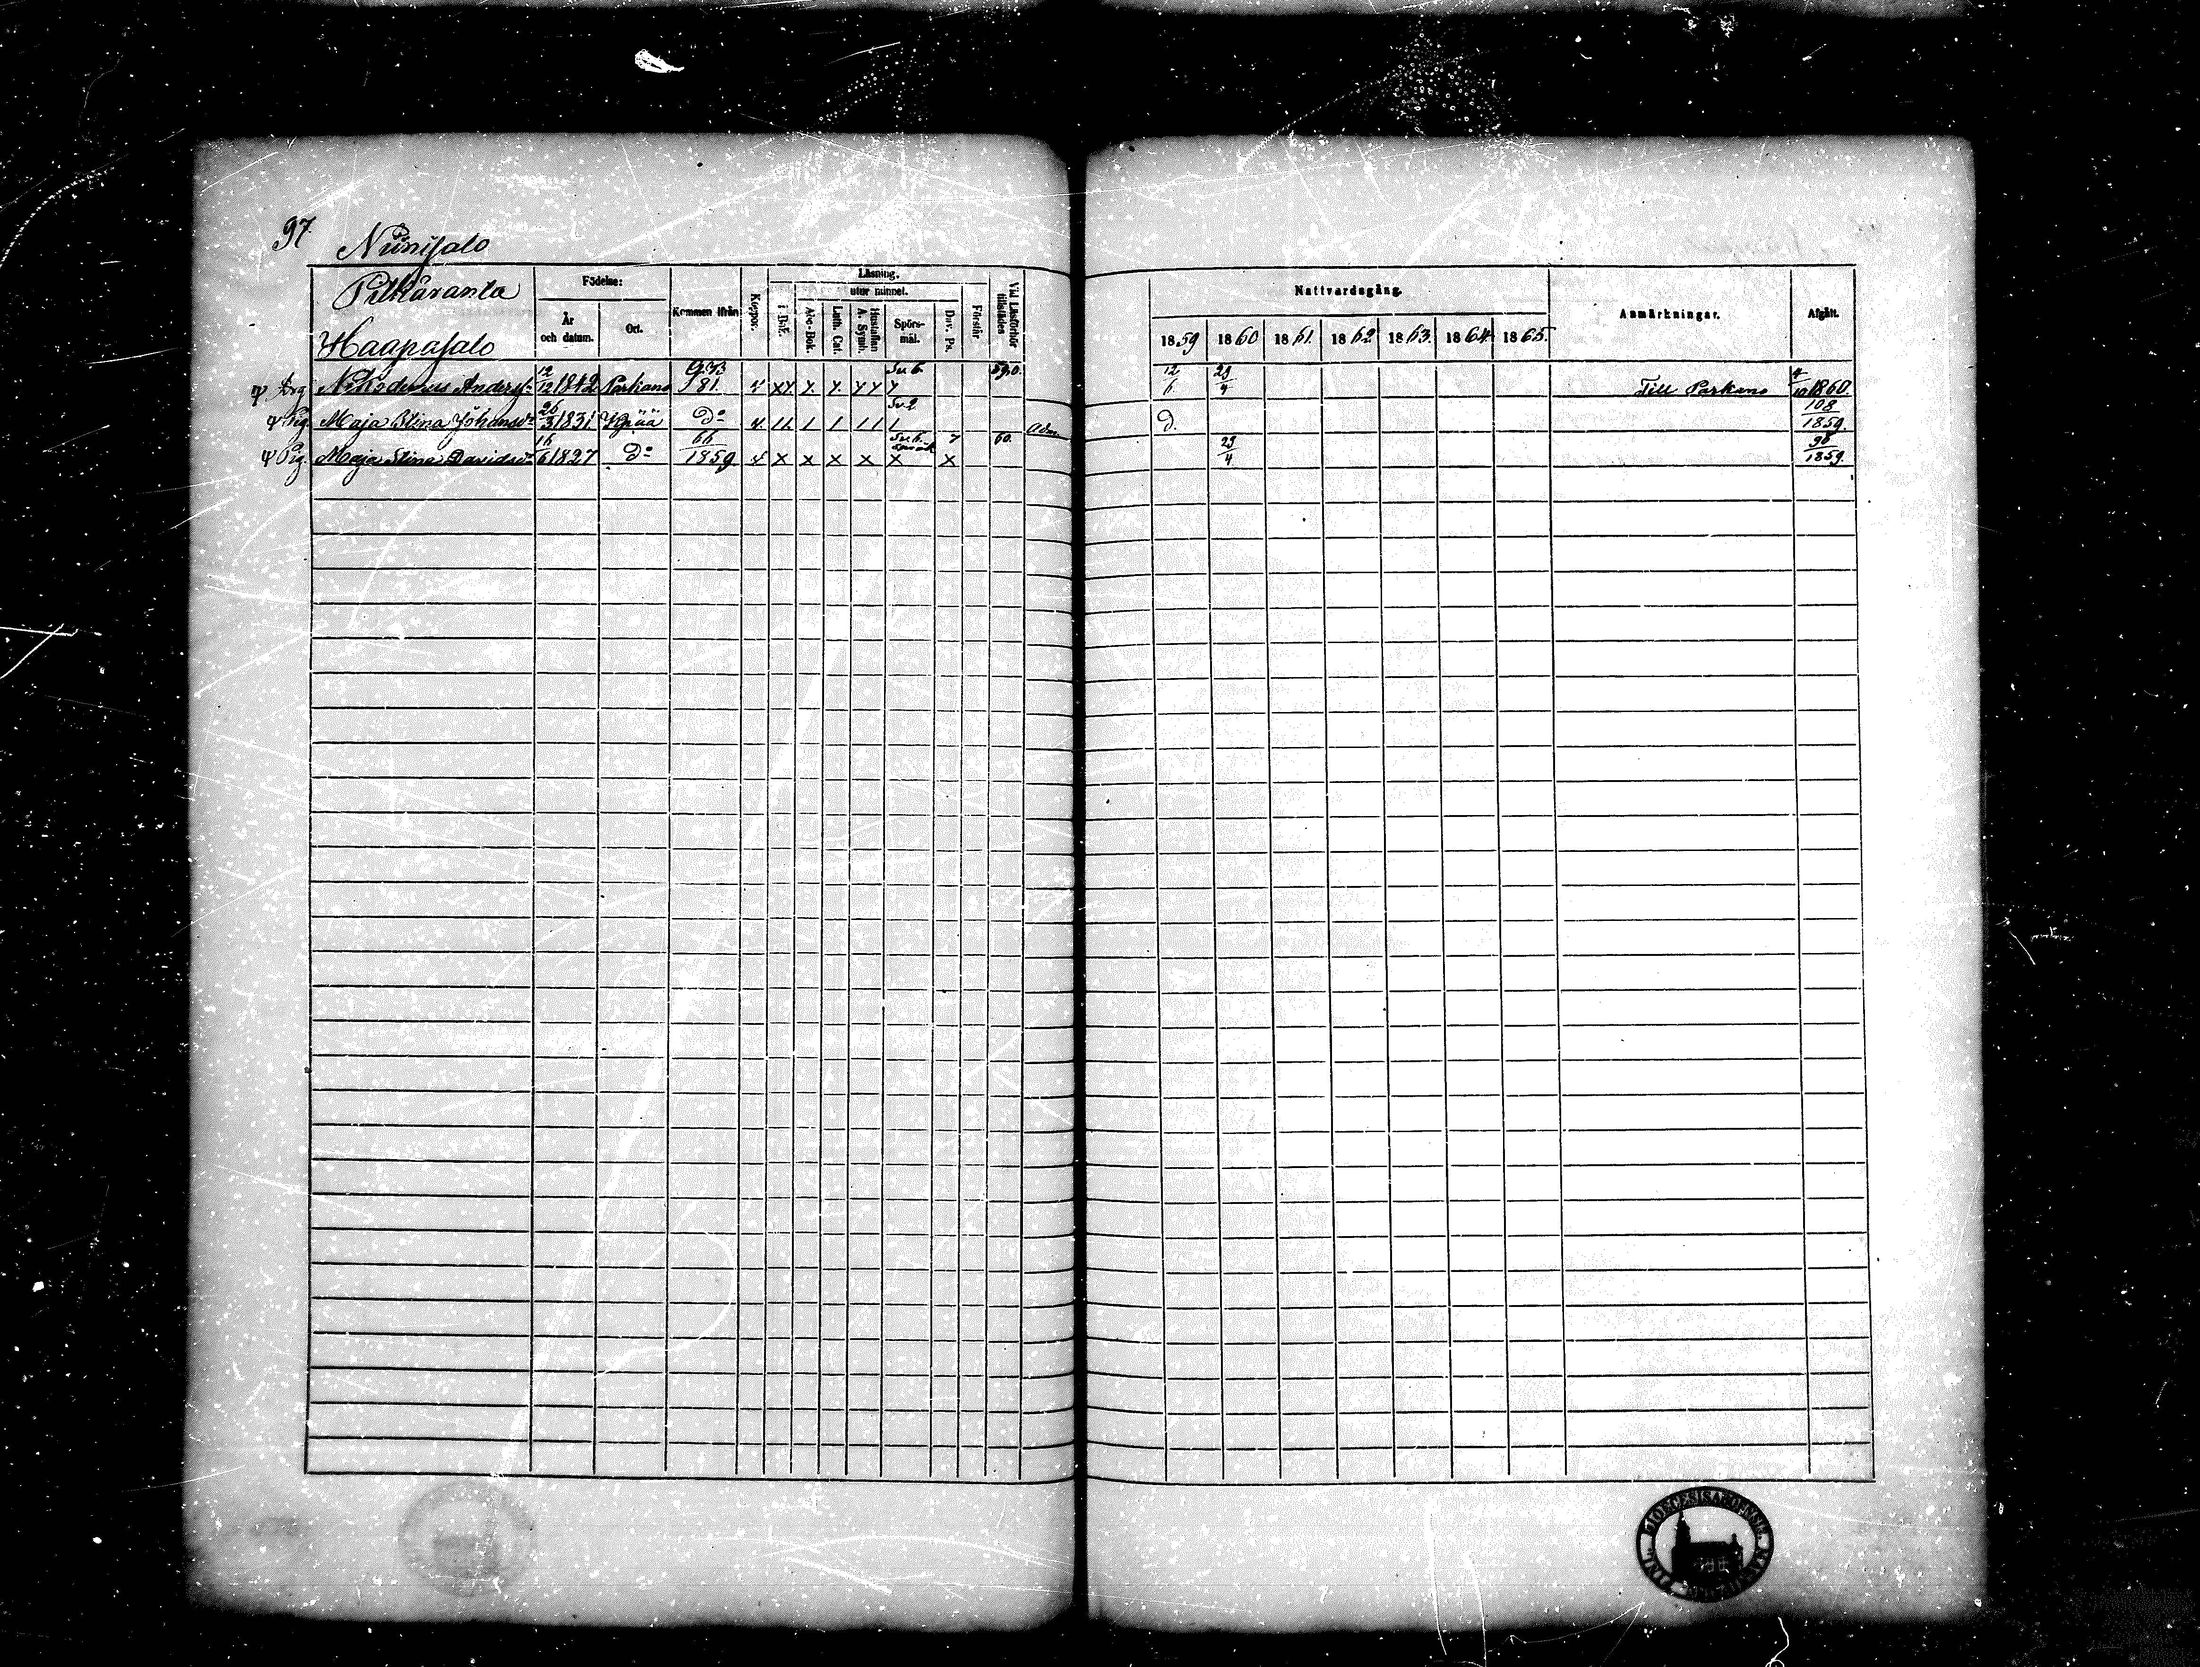 97
Niinisalo
Pitkäranta
Haapasalo
Födelse:
År och datum.
Ort.
Kommen ifrån
Koppor.
Läsning.
i Bok.
utur minnet.
Abc-Bok.
Luth. Cat.
Hustaflan A. Symb.
Spörs-mål.
Dav. Ps.
Förstår
Vid Läsförhör tillstädes
Nattvardsgång.
1859 1860 1861. 1862 1863. 1864 1865.
Anmärkningar.
Afgått.
Drg Nikodemus Anders 12/12 1842 Parkano 81. x x x x x x x Sv. 6 59.0. 12/6 29/4 Till Parkano 4/10 1860.
Pig. Maja Stina Johansdr 26/3 1831 do 1 1 1 1 1 1 1 Sv 2 Adm d. 108/1859.
Pig. Maja Stina Davidsdr 16/6 1827 do 66/1859 x x x x x x x 60. 29/4 98/1859.